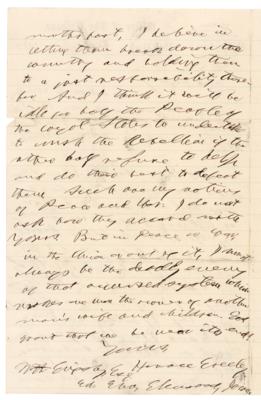 months past, I believe in
letting them break down the
country and holding them
to a just responsibility there-
for. And I think it will be
for half the People of
the loyal States to undertake
to crush the Rebellion if the
other half refuse to help
and do their best to defeat
them. Such are my notions
of Peace and War. I do not
ask how they accord with
yours. But in peace or war,
in the or out of it, I must
always be the deadly enemy
of that accursed system which
makes one man the owner of another
man's wife and children. God
grant that we be near its end!
Yours,
Horace Greeley
Wm Esq
Ed. Iowa